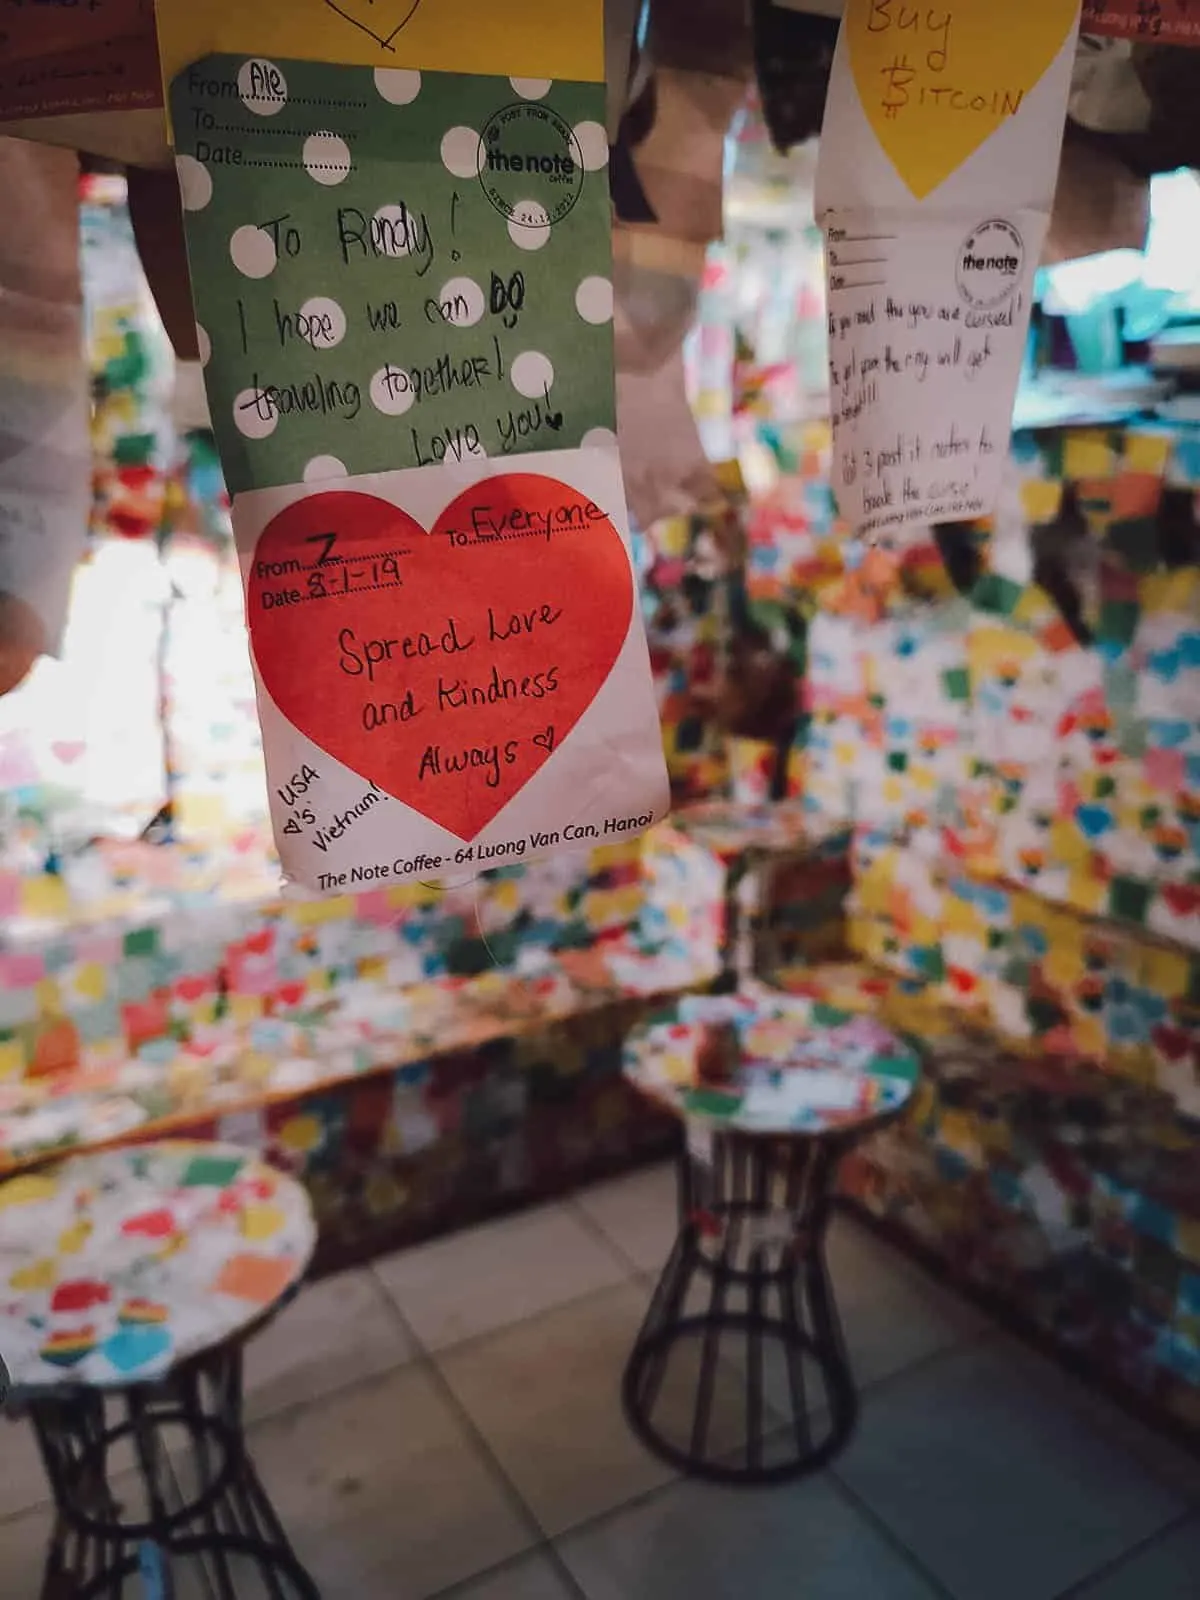 From Ale
To
Date
POST FROM
the note
coffee
SINCE 24.12.2012
To Rendy!
I hope we can DO
traveling together!
Love you!
From Z
To Everyone
Date 8-1-19
Spread Love
and Kindness
Always
USA
♡'s
Vietnam!
The Note Coffee - 64 Luong Van Can, Hanoi
Buy
BITCOIN
From
To
Date
the note
you are cursed!
will get
3 post it notes to
break the curse